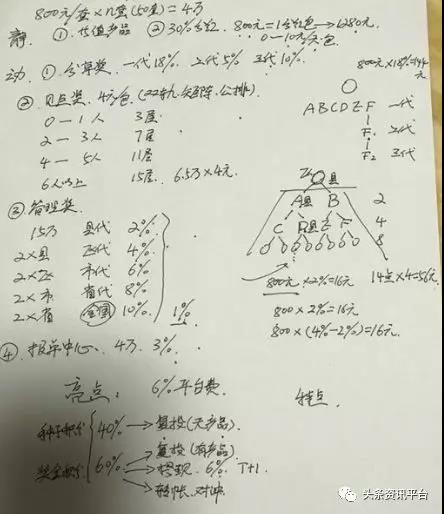 800元/套×n套(50层)=4万
静. ①.代值产品 ②30%分红. 800元=1个红包→1280元.
0—10元/天/包
动. ①.分享奖. 一代18%. 二代5% 三代10%.
②.见点奖. 4元/包.(22制.矩阵.公排)
0—1人 3层
2—3人 7层
4—5人 11层
6人以上 15层. 6.5万×4元.
ABCDEF 一代
F₁ 二代
F₂ 三代
县
A县 B 2
C D县E F 4
8
③.管理奖.
15万 县代 2%
2×县 区代 4%
2×区 市代 6%
2×市 省代 8%
2×省 全国 10% 1%
800元×2%=16元 14点×4=56元
800×2%=16元
800×(4%-2%)=16元.
④.报单中心. 4万. 3%.
亮点: 6%平台费. 特点.
种子积分 40%→复投(无产品)
奖金积分 60%→复投(有产品)
→提现. 6%. T+1.
→转帐.对冲.
头条资讯平台